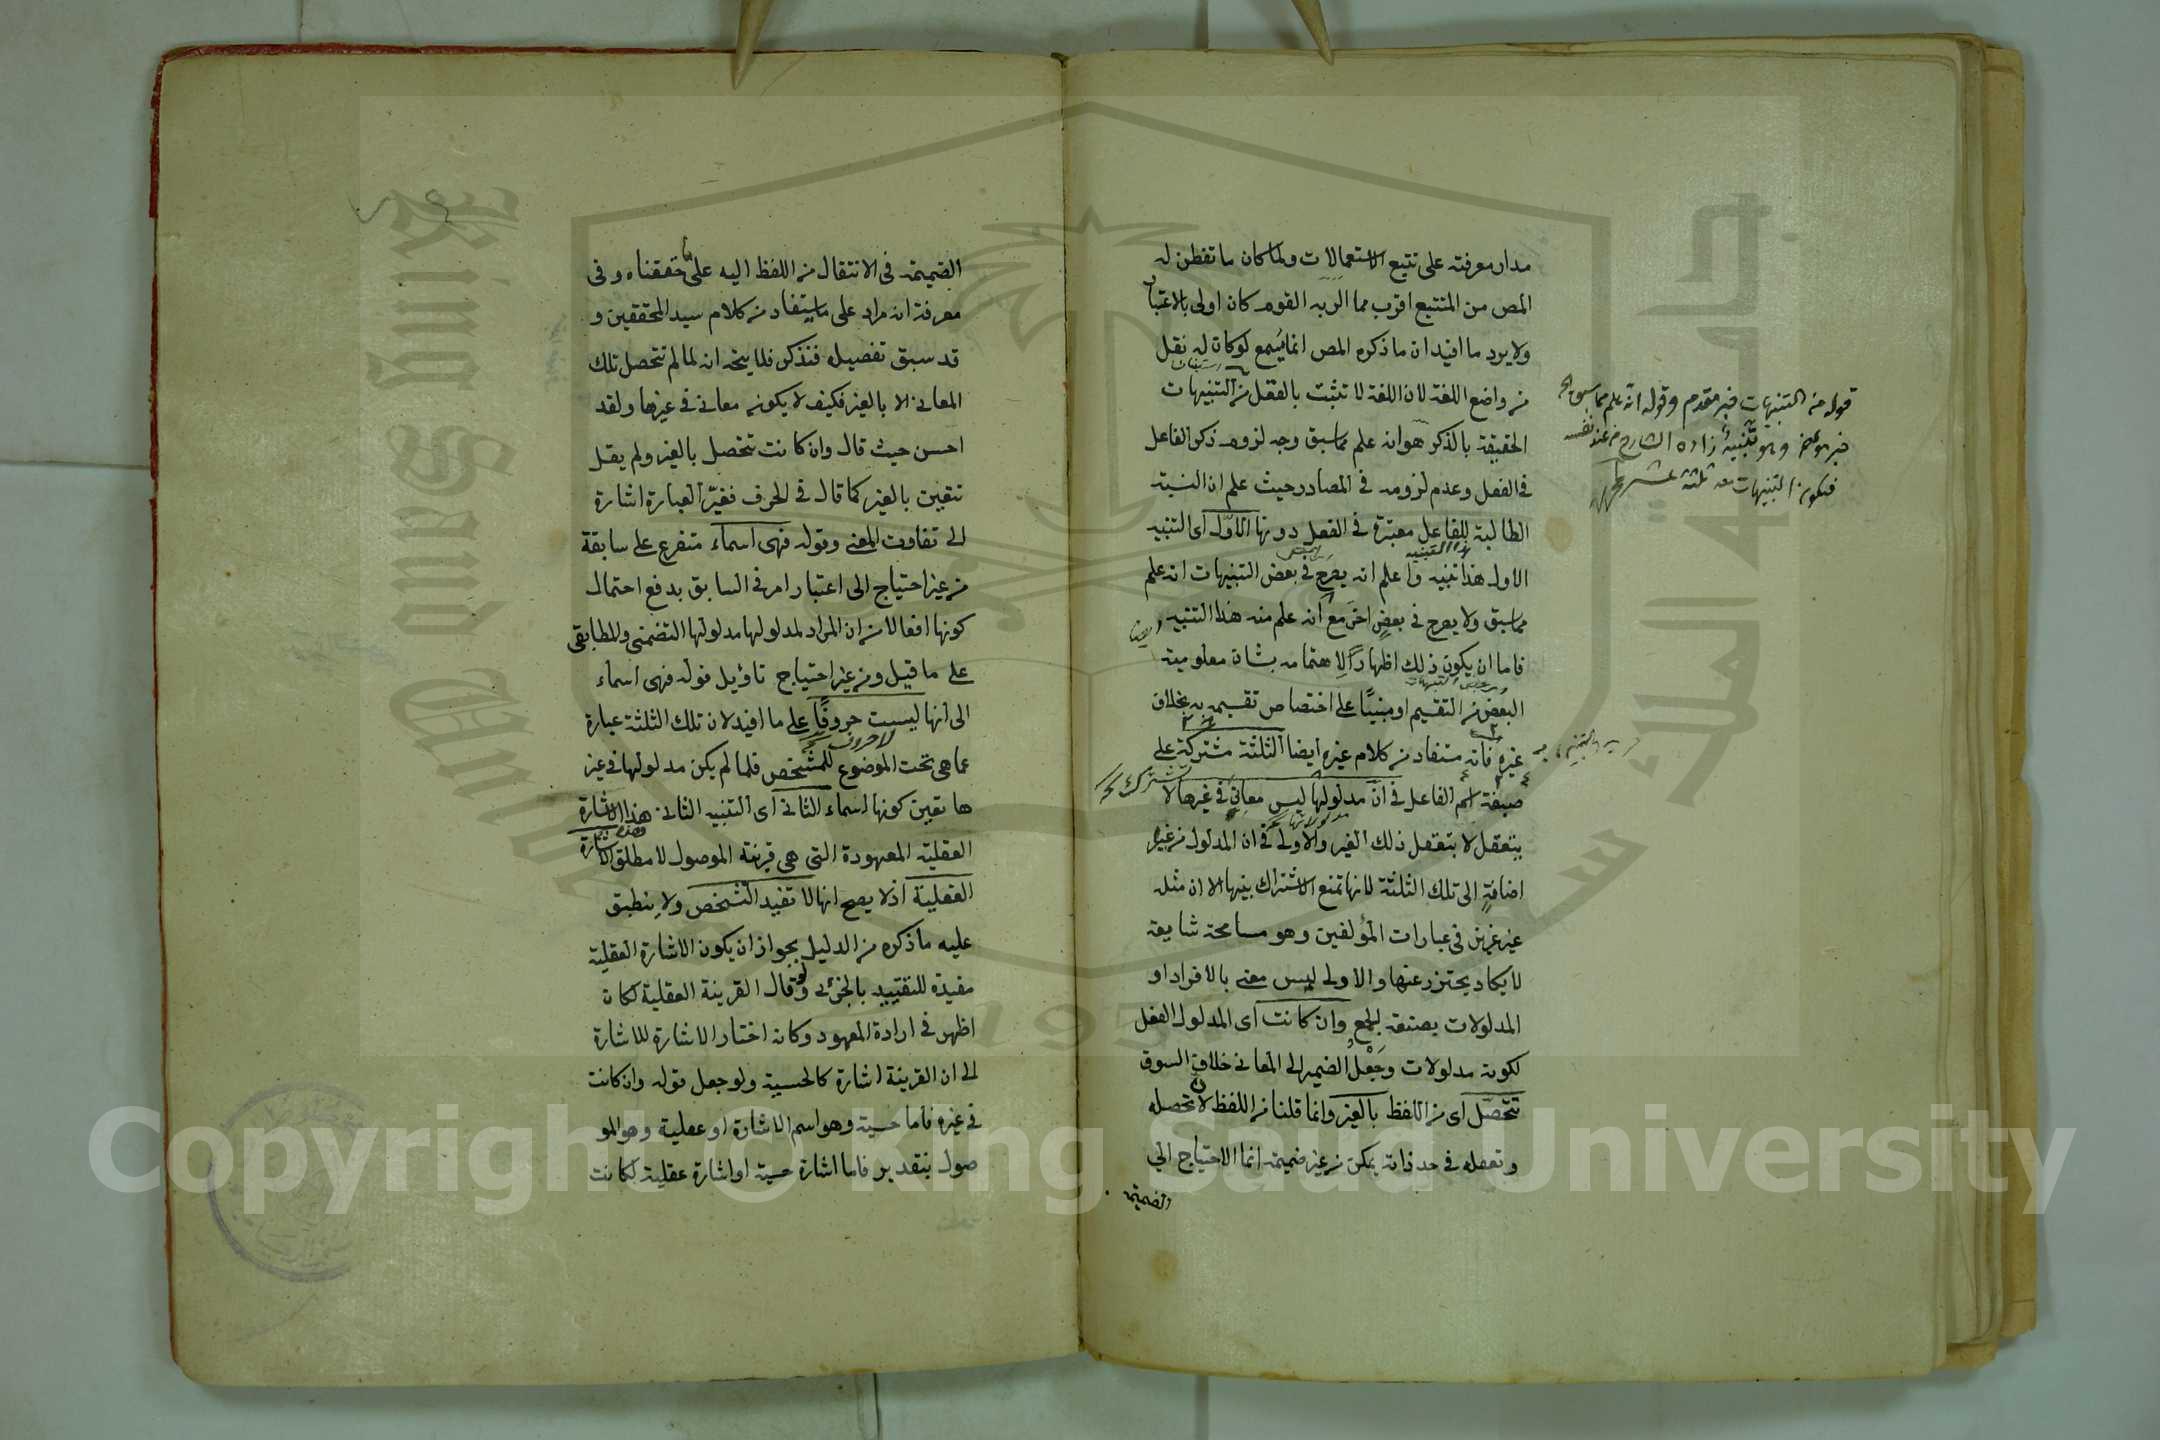 مدار معرفته على تتبع الاستعمالات ولما كان ما تفطن له
المص من المتتبع اقرب مما القوم كان اولى بالاعتبار
ولا يرد ما افيد ان ما ذكره المص انما يسمع لو كان له نقل
من واضع اللغة لان اللغة لا تثبت بالعقل من التنبيهات
الحقيقة بالذكر هو انه علم مما سبق وجه لزوم ذكر الفاعل
في الفعل وعدم لزومه في المصادر حيث علم ان النسبة
الطالبة للفاعل معتبرة في الفعل دونها الاول اى التنبيه
الاول هذا تنبيه واعلم انه يصرح في بعض التنبيهات انه علم
مما سبق ولا يصرح في بعض اخر مع انه علم منه هذا التنبيه
فاما ان يكون ذلك اظهارا لاهتمامه بشان معلومية
البعض من التقسيم او مبنيا على اختصاص تقسيمه به بخلاف
غيره فانه مستفاد من كلام غيره ايضا الثلثة مشتركة على
صيغة اسم الفاعل في ان مدلولها ليس معانى في غيرها لا
يتعقل لا بتعقل ذلك الغير والاولى في ان المدلول من غير
اضافة الى تلك الثلثة لانها تمنع الاشتراك بينها الا ان مثله
غير عزيز في عبارات المؤلفين وهو مسامحة شايعة
لا يكاد يحترز عنها والاولى ليس معنى بالافراد او
المدلولات بصيغة الجمع وان كانت اى المدلول الفعل
لكونه مدلولات وجعل الضمير الى المعانى خلاف السوق
تتحصل اى من اللفظ بالغير وانما قلنا من اللفظ لان تحصله
وتعقله في حد ذاته يمكن من غير ضميمة انما الاحتياج الى
الضميمة
قوله من التنبيهات خبر مقدم وقوله انه علم مما سبق الخ
الضميمة في الانتقال من اللفظ اليه على ما حققناه وفى
معرفة انه مراد على ما يستفاد من كلام سيد المحققين و
قد سبق تفصيله فتذكر فلا يتجه انه لما لم تتحصل تلك
المعانى الا بالغير فكيف لا يكون معانى في غيرها ولقد
احسن حيث قال وان كانت تتحصل بالغير ولم يقل
تتعين بالغير كما قال في الحرف فغير العبارة اشارة
الى تفاوت المعنى وقوله فهى اسماء متفرع على سابقة
من غير احتياج الى اعتبار امر في السابق بدفع احتمال
كونها افعالا من ان المراد لمدلولها مدلولها التضمنى والمطابقى
على ما قيل ومن غير احتياج تاويل قوله فهى اسماء
الى انها ليست حروفا على ما افيد لان تلك الثلثة عبارة
عما هى تحت الموضوع للمشخص فلما لم يكن مدلولها في غير
ها تعين كونها اسماء الثانى اى التنبيه الثانى هذا الاشارة
العقلية المعهودة التى هى قرينة الموصول لا مطلق الاشارة
العقلية اذ لا يصح انها لا تفيد التشخص ولا ينطبق
عليه ما ذكره من الدليل بجواز ان يكون الاشارة العقلية
مفيدة للتقييد بالجزئى ولو قال القرينة العقلية لكان
اظهر في ارادة المعهود وكانه اختار الاشارة للاشارة
الى ان القرينة اشارة كالحسية ولو جعل قوله وان كانت
في غيره فاما حسية وهو اسم الاشارة او عقلية وهو المو
صول بتقدير فاما اشارة حسية او اشارة عقلية لكانت
Copyright © King Saud University
جامعة الملك سعود
King Saud University
1957